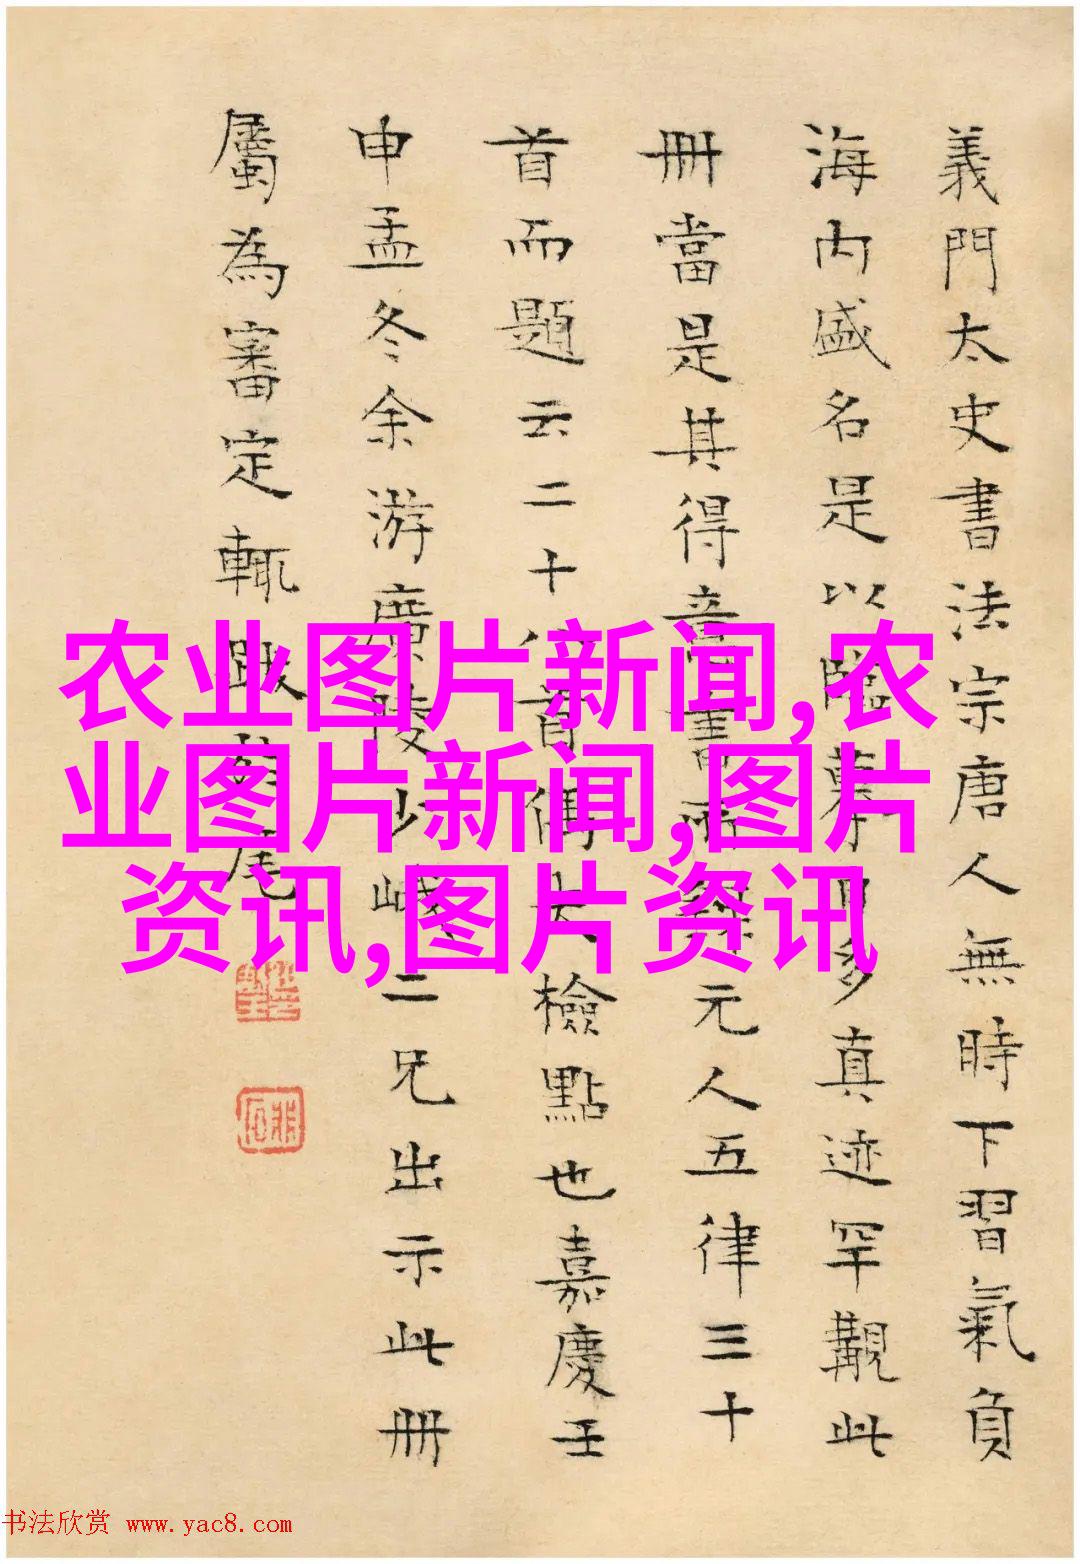 義門太史書法宗唐人無時下習氣負
海内盛名是以臨摹日多真迹罕覯此
冊當是其得意書所錄元人五律三十
首而題云二十八首偶失檢點也嘉慶壬
申孟冬余游廣陵少峨二兄出示此冊
屬為審定輒跋於尾
农业图片新闻,农
业图片新闻,图片
资讯,图片资讯
书法欣赏 www.yac8.com